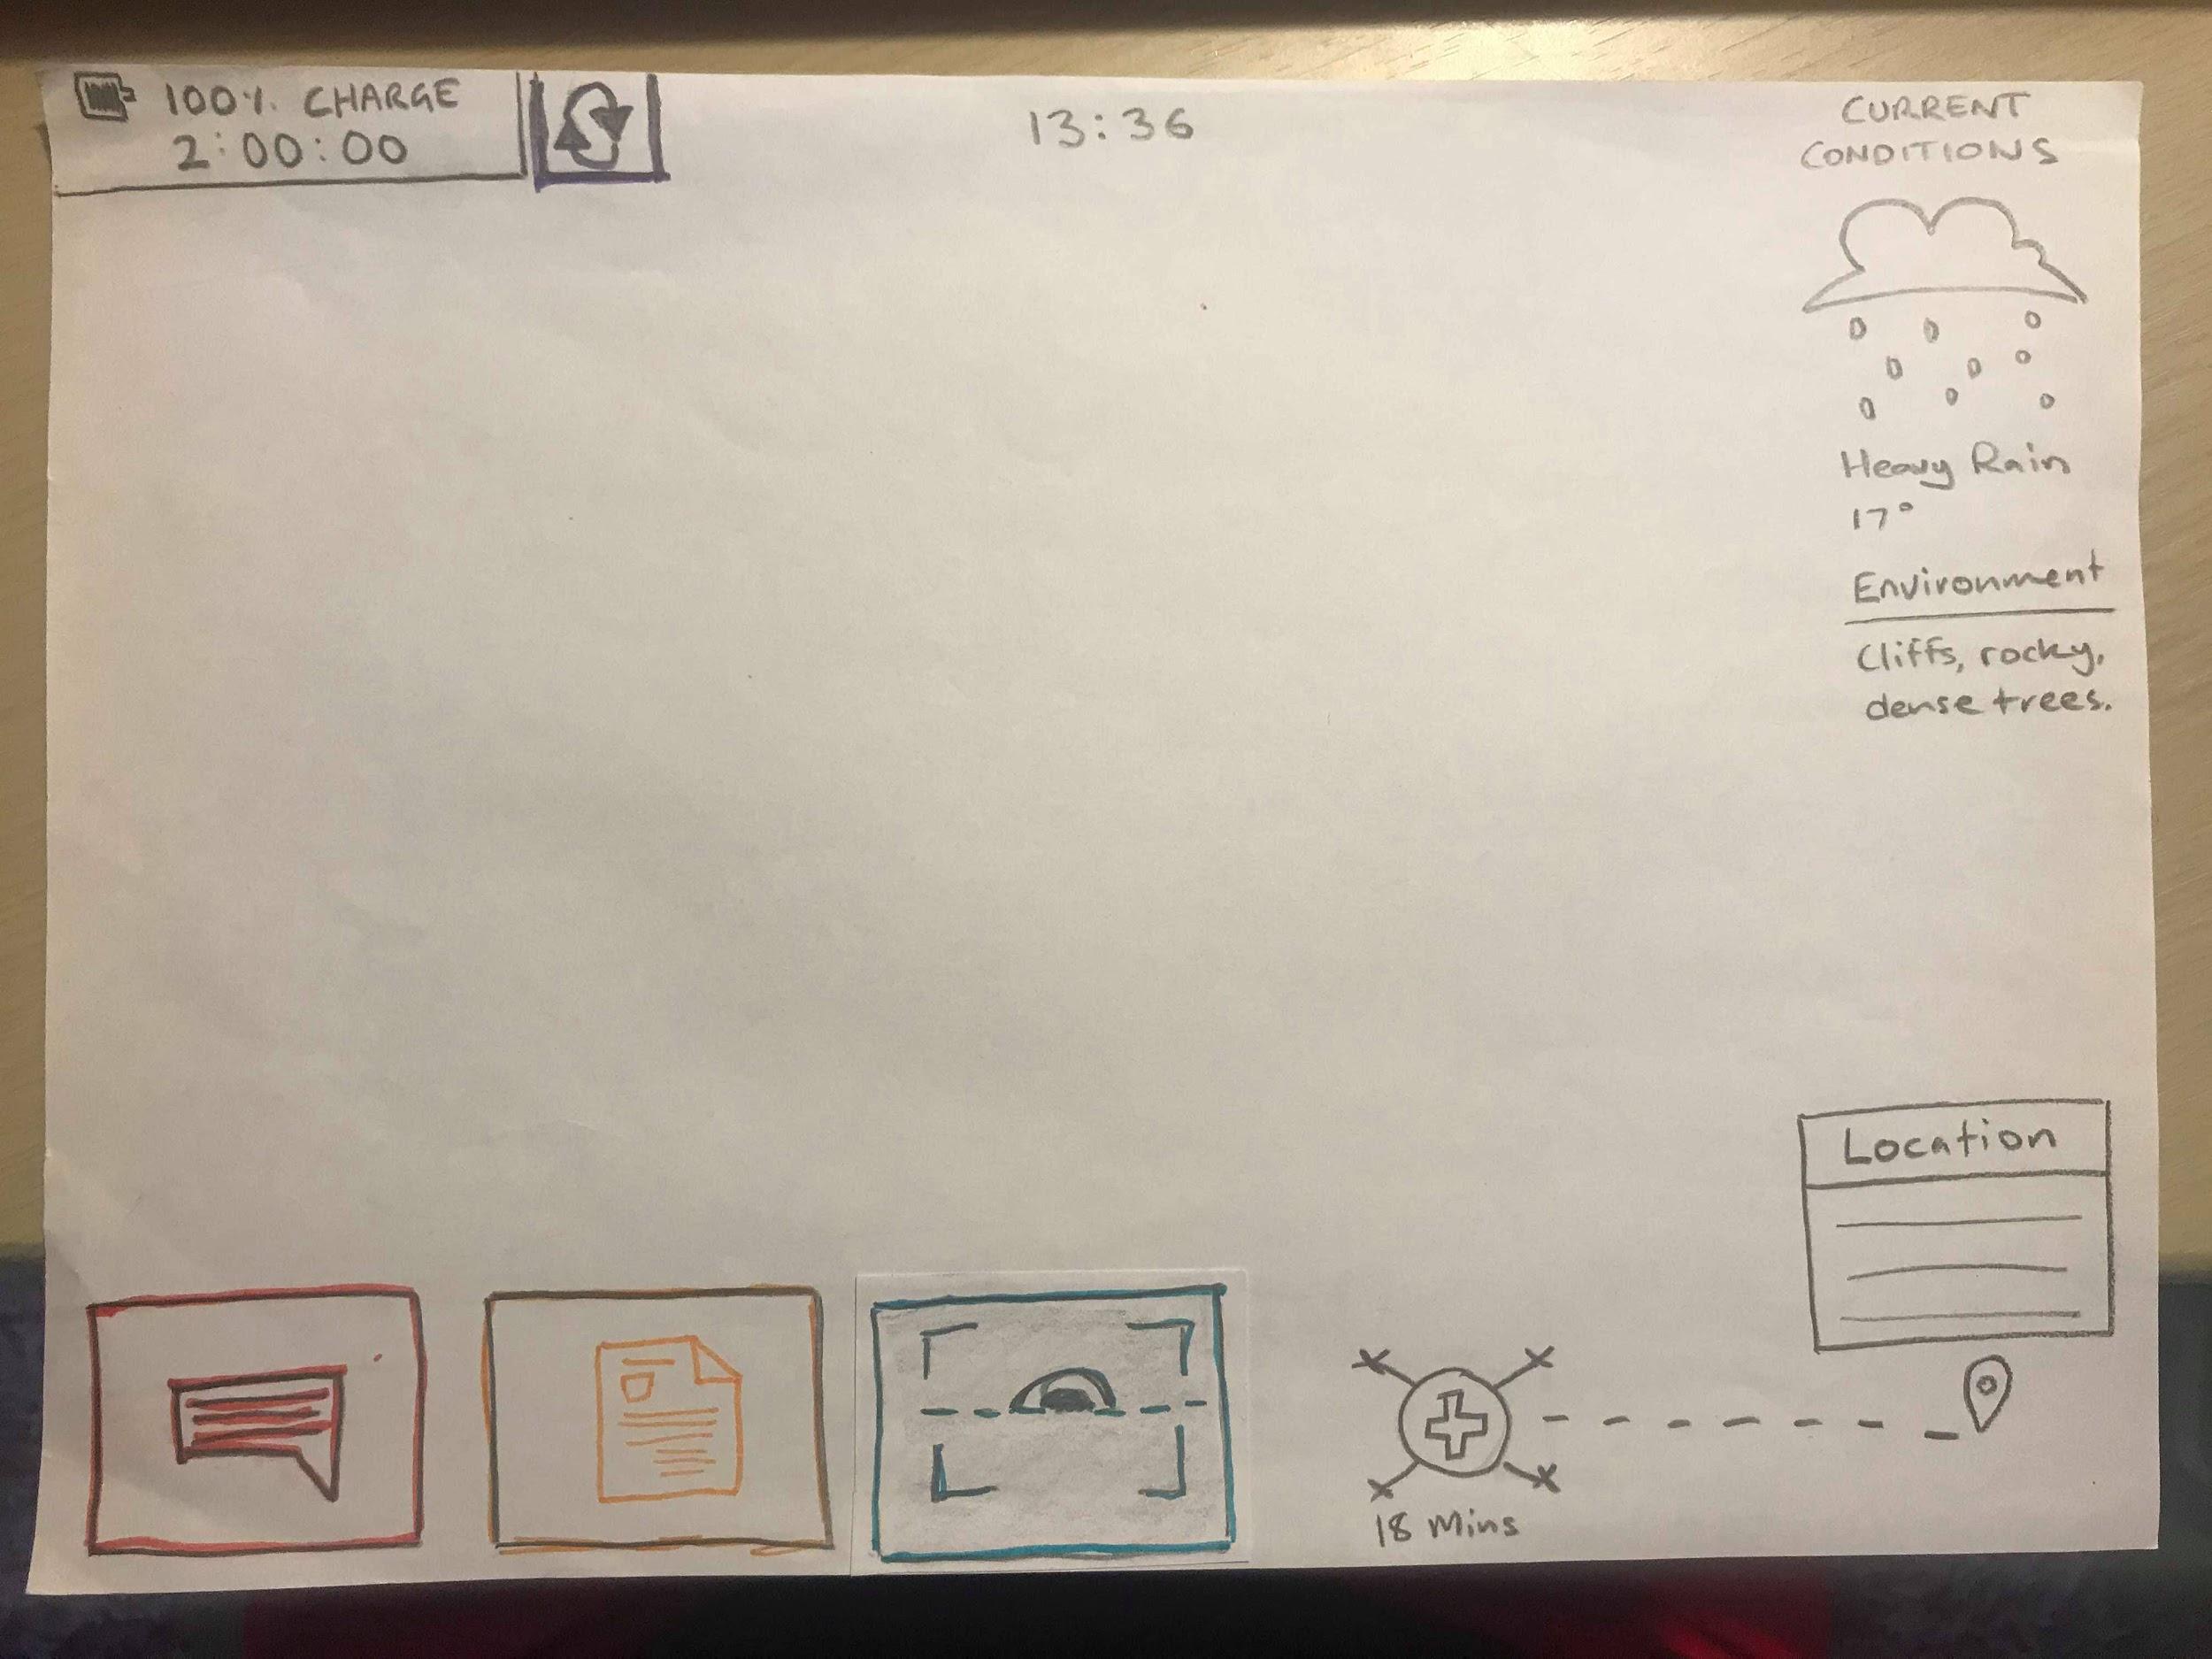 100% CHARGE
2:00:00
13:36
CURRENT
CONDITIONS
Heavy Rain
17°
Environment
Cliffs, rocky,
dense trees.
Location
18 Mins